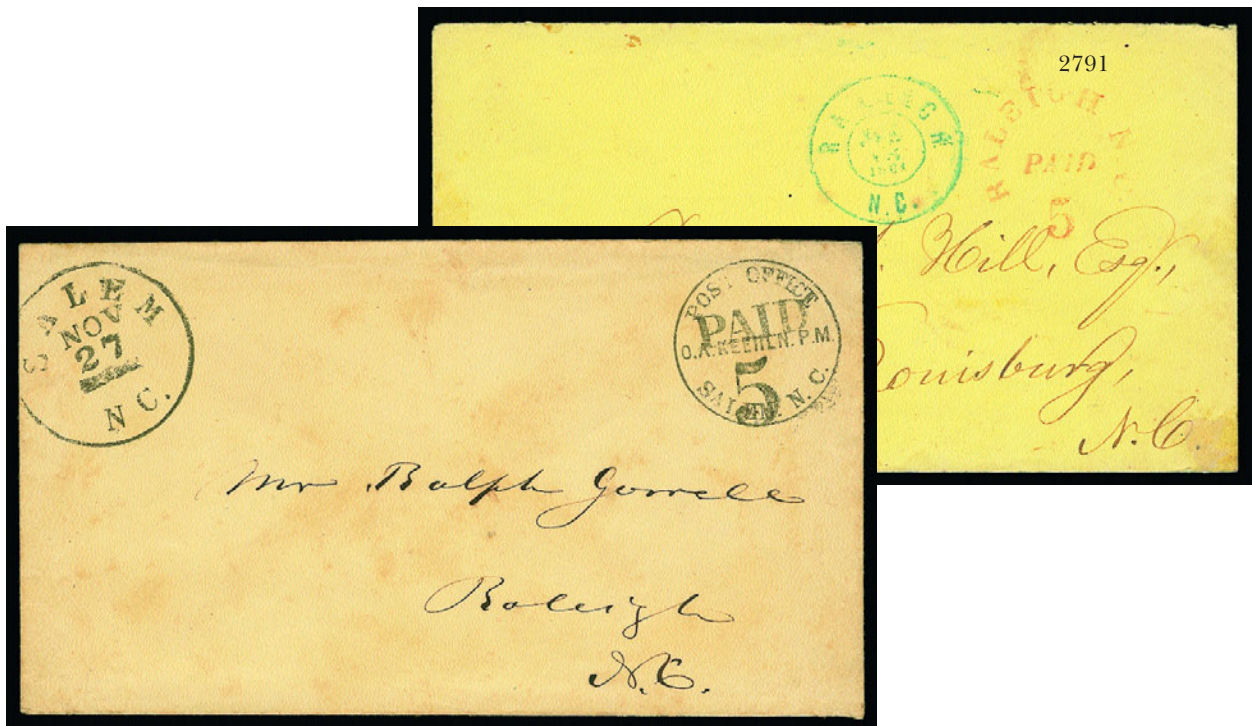 2791
RALEIGH
N.C.
RALEIGH N.C.
PAID
5
Hill, Esqr,
Louisburg,
N.C.
SALEM
NOV
27
N C.
POST OFFICE
PAID
O.A. KEEHLN. P.M.
5
SALEM N. C.
Mr Ralph Gorrell
Raleigh
N.C.